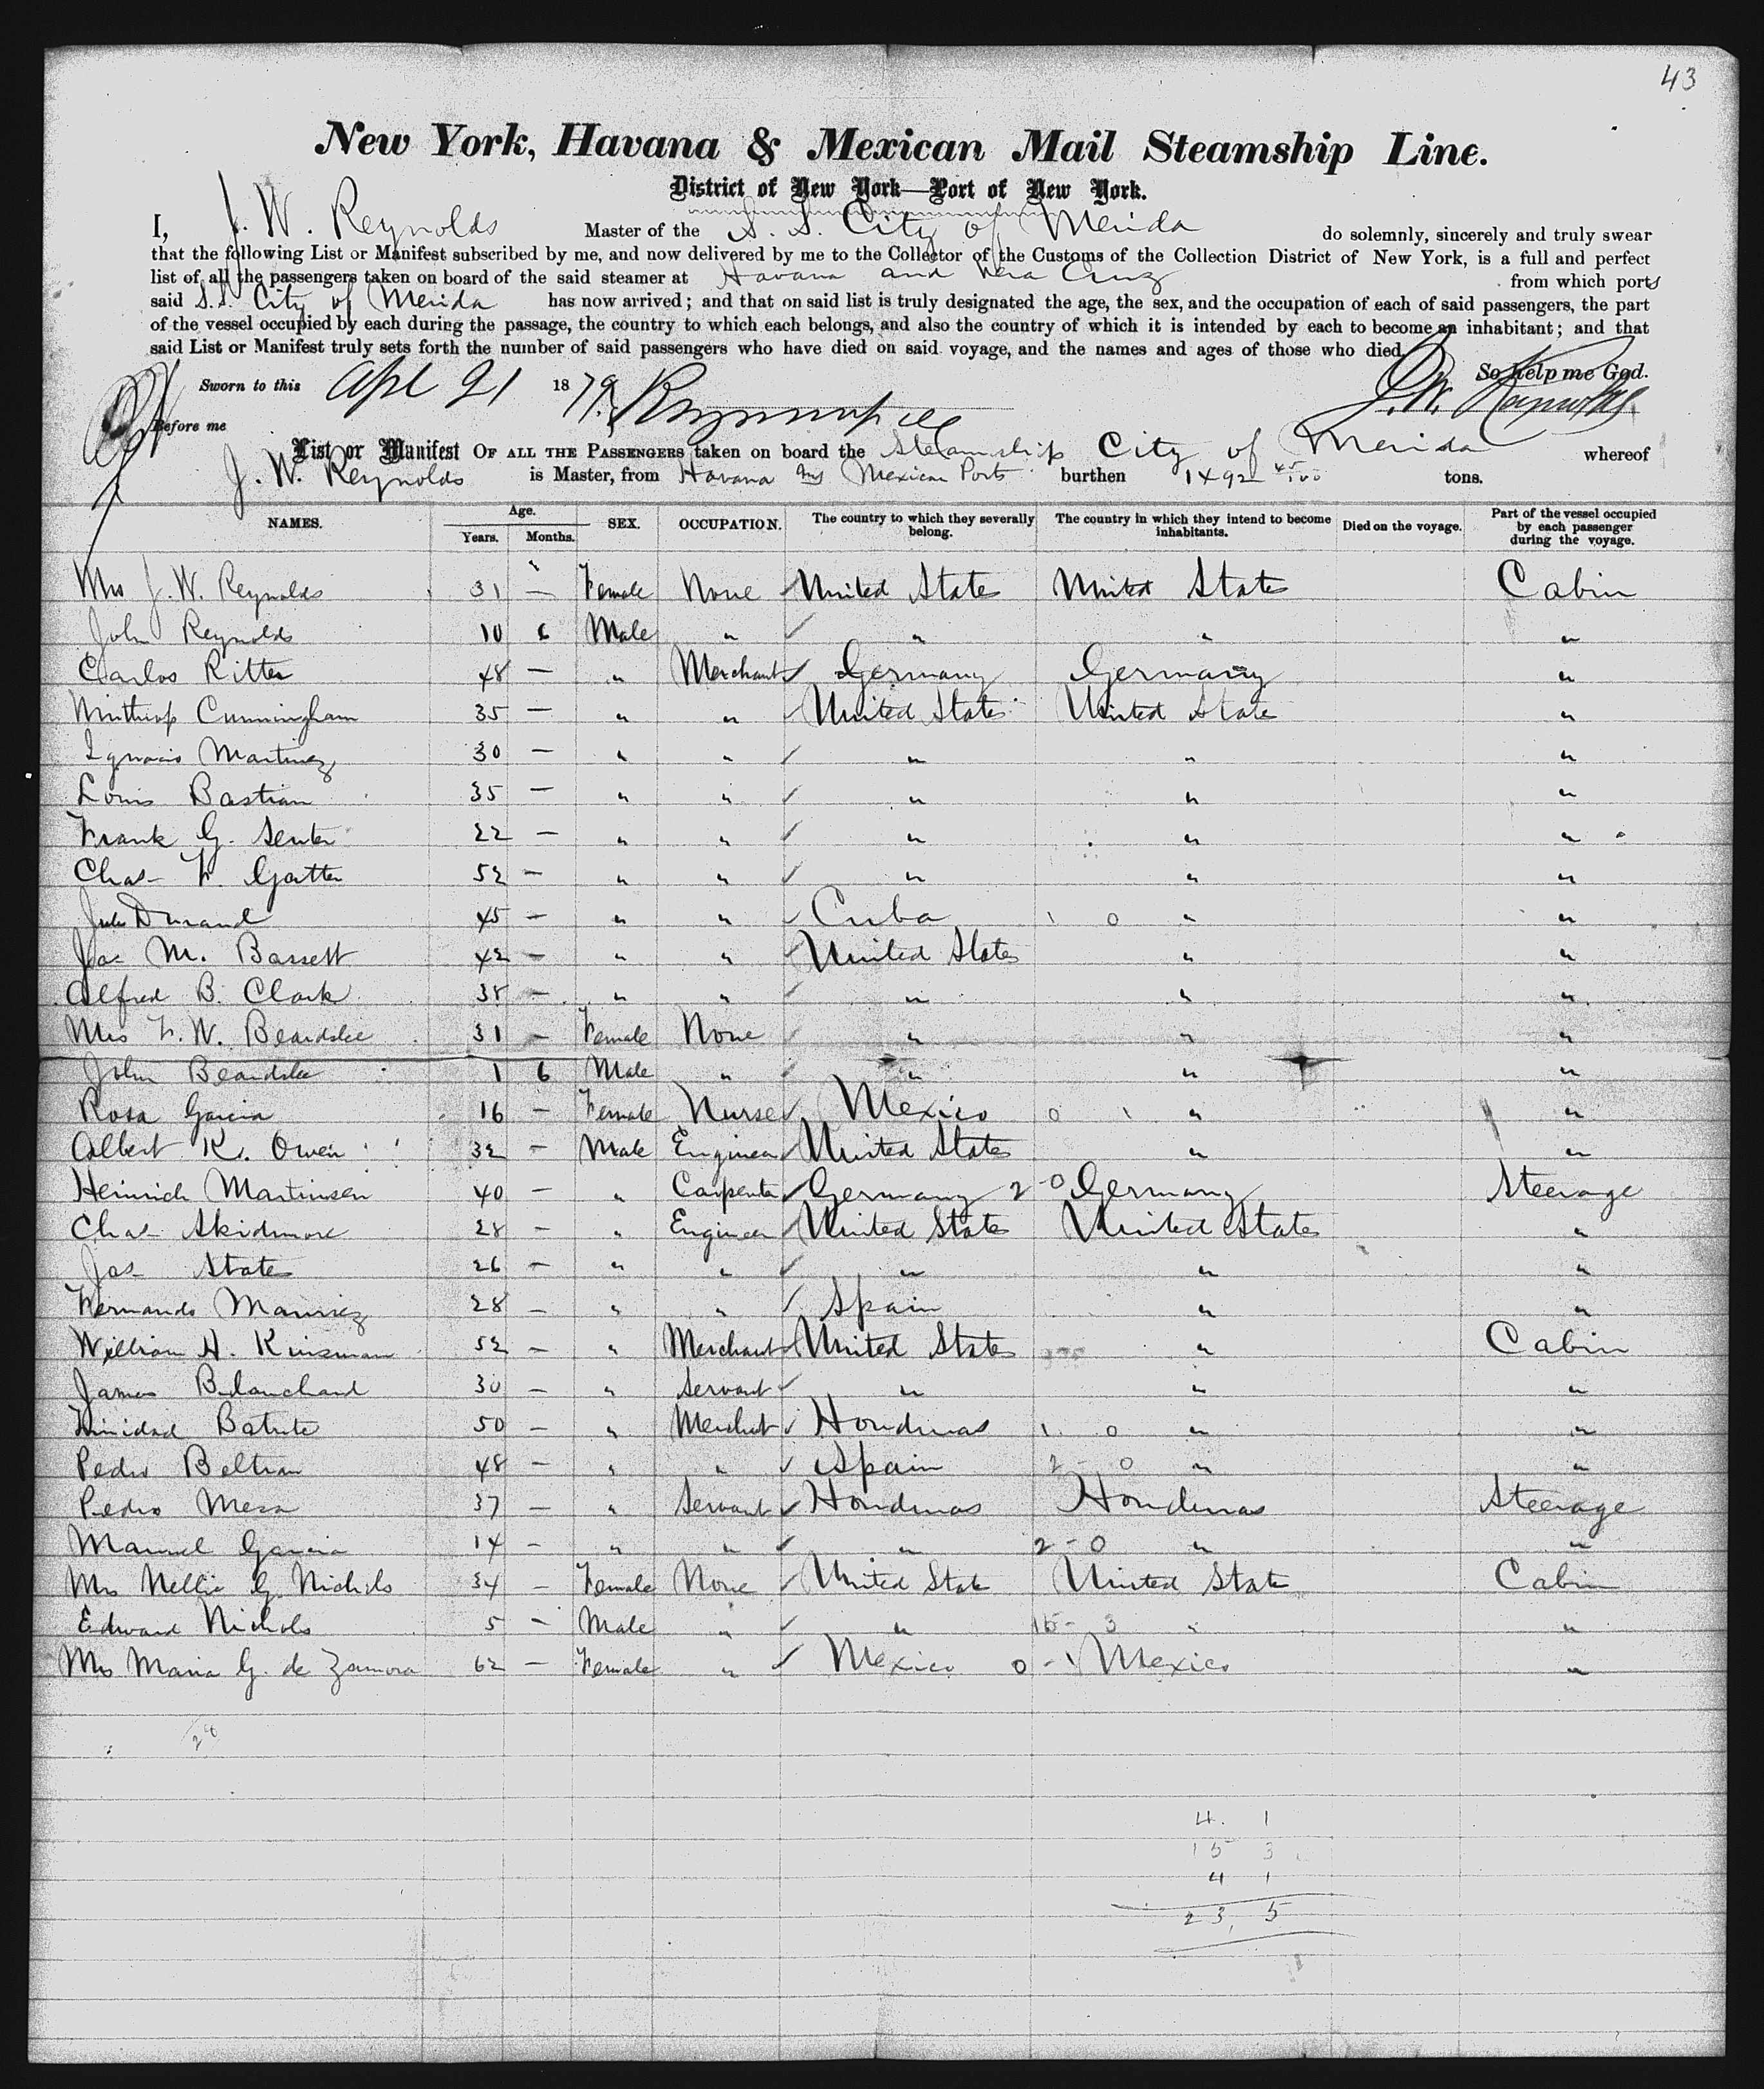 43
New York, Havana & Mexican Mail Steamship Line.
District of New York—Port of New York.
I, J. W. Reynolds Master of the S. S. City of Merida do solemnly, sincerely and truly swear
that the following List or Manifest subscribed by me, and now delivered by me to the Collector of the Customs of the Collection District of New York, is a full and perfect
list of all the passengers taken on board of the said steamer at Havana and Vera Cruz from which ports
said S.S. City of Merida has now arrived; and that on said list is truly designated the age, the sex, and the occupation of each of said passengers, the part
of the vessel occupied by each during the passage, the country to which each belongs, and also the country of which it is intended by each to become an inhabitant; and that
said List or Manifest truly sets forth the number of said passengers who have died on said voyage, and the names and ages of those who died.
So help me God.
Sworn to this Apl 21 1879. J. W. Reynolds
Before me
List or Manifest OF ALL THE PASSENGERS taken on board the Steamship City of Merida whereof
J. W. Reynolds is Master, from Havana and Mexican Ports burthen 1492 45/100 tons.
NAMES. Age. Years. Months. SEX. OCCUPATION. The country to which they severally belong. The country in which they intend to become inhabitants. Died on the voyage. Part of the vessel occupied by each passenger during the voyage.
Mrs J. W. Reynolds 31 — Female None United States United States Cabin
John Reynolds 10 6 Male " " " "
Carlos Ritter 48 — " Merchant Germany Germany "
Winthrop Cunningham 35 — " " United States United States "
Ignacio Martinez 30 — " " " " "
Louis Bastian 35 — " " " " "
Frank G. Senter 22 — " " " " "
Chas F. Gatter 52 — " " " " "
Jules Durand 45 — " " Cuba 1 0 " "
Jas M. Bassett 42 — " " United States " "
Alfred B. Clark 38 — " " " " "
Mrs F. W. Beardslee 31 — Female None " " "
John Beardslee 1 6 Male " " " "
Rosa Garcia 16 — Female Nurse Mexico 0 1 " "
Albert K. Owen 32 — Male Engineer United States " "
Heinrich Martinsen 40 — " Carpenter Germany 2-0 Germany Steerage
Chas Skidmore 28 — " Engineer United States United States "
Jas States 26 — " " " " "
Fernando 28 — " " Spain " "
William H. Kinsman 52 — " Merchant United States " Cabin
James Blanchard 30 — " Servant " " "
Trinidad 50 — " Merchant Honduras 1 0 " "
Pedro Beltran 48 — " " Spain 2-0 " "
Pedro Meza 37 — " Servant Honduras Honduras Steerage
Manuel Garcia 14 — " " " 2-0 " "
Mrs Nellie G. Nichols 34 — Female None United States United States Cabin
Edward Nichols 5 — Male " " 15-3 " "
Mrs Maria G. de Zamora 62 — Female " Mexico 0-1 Mexico "
28
4. 1
15 3
4 1
23, 5